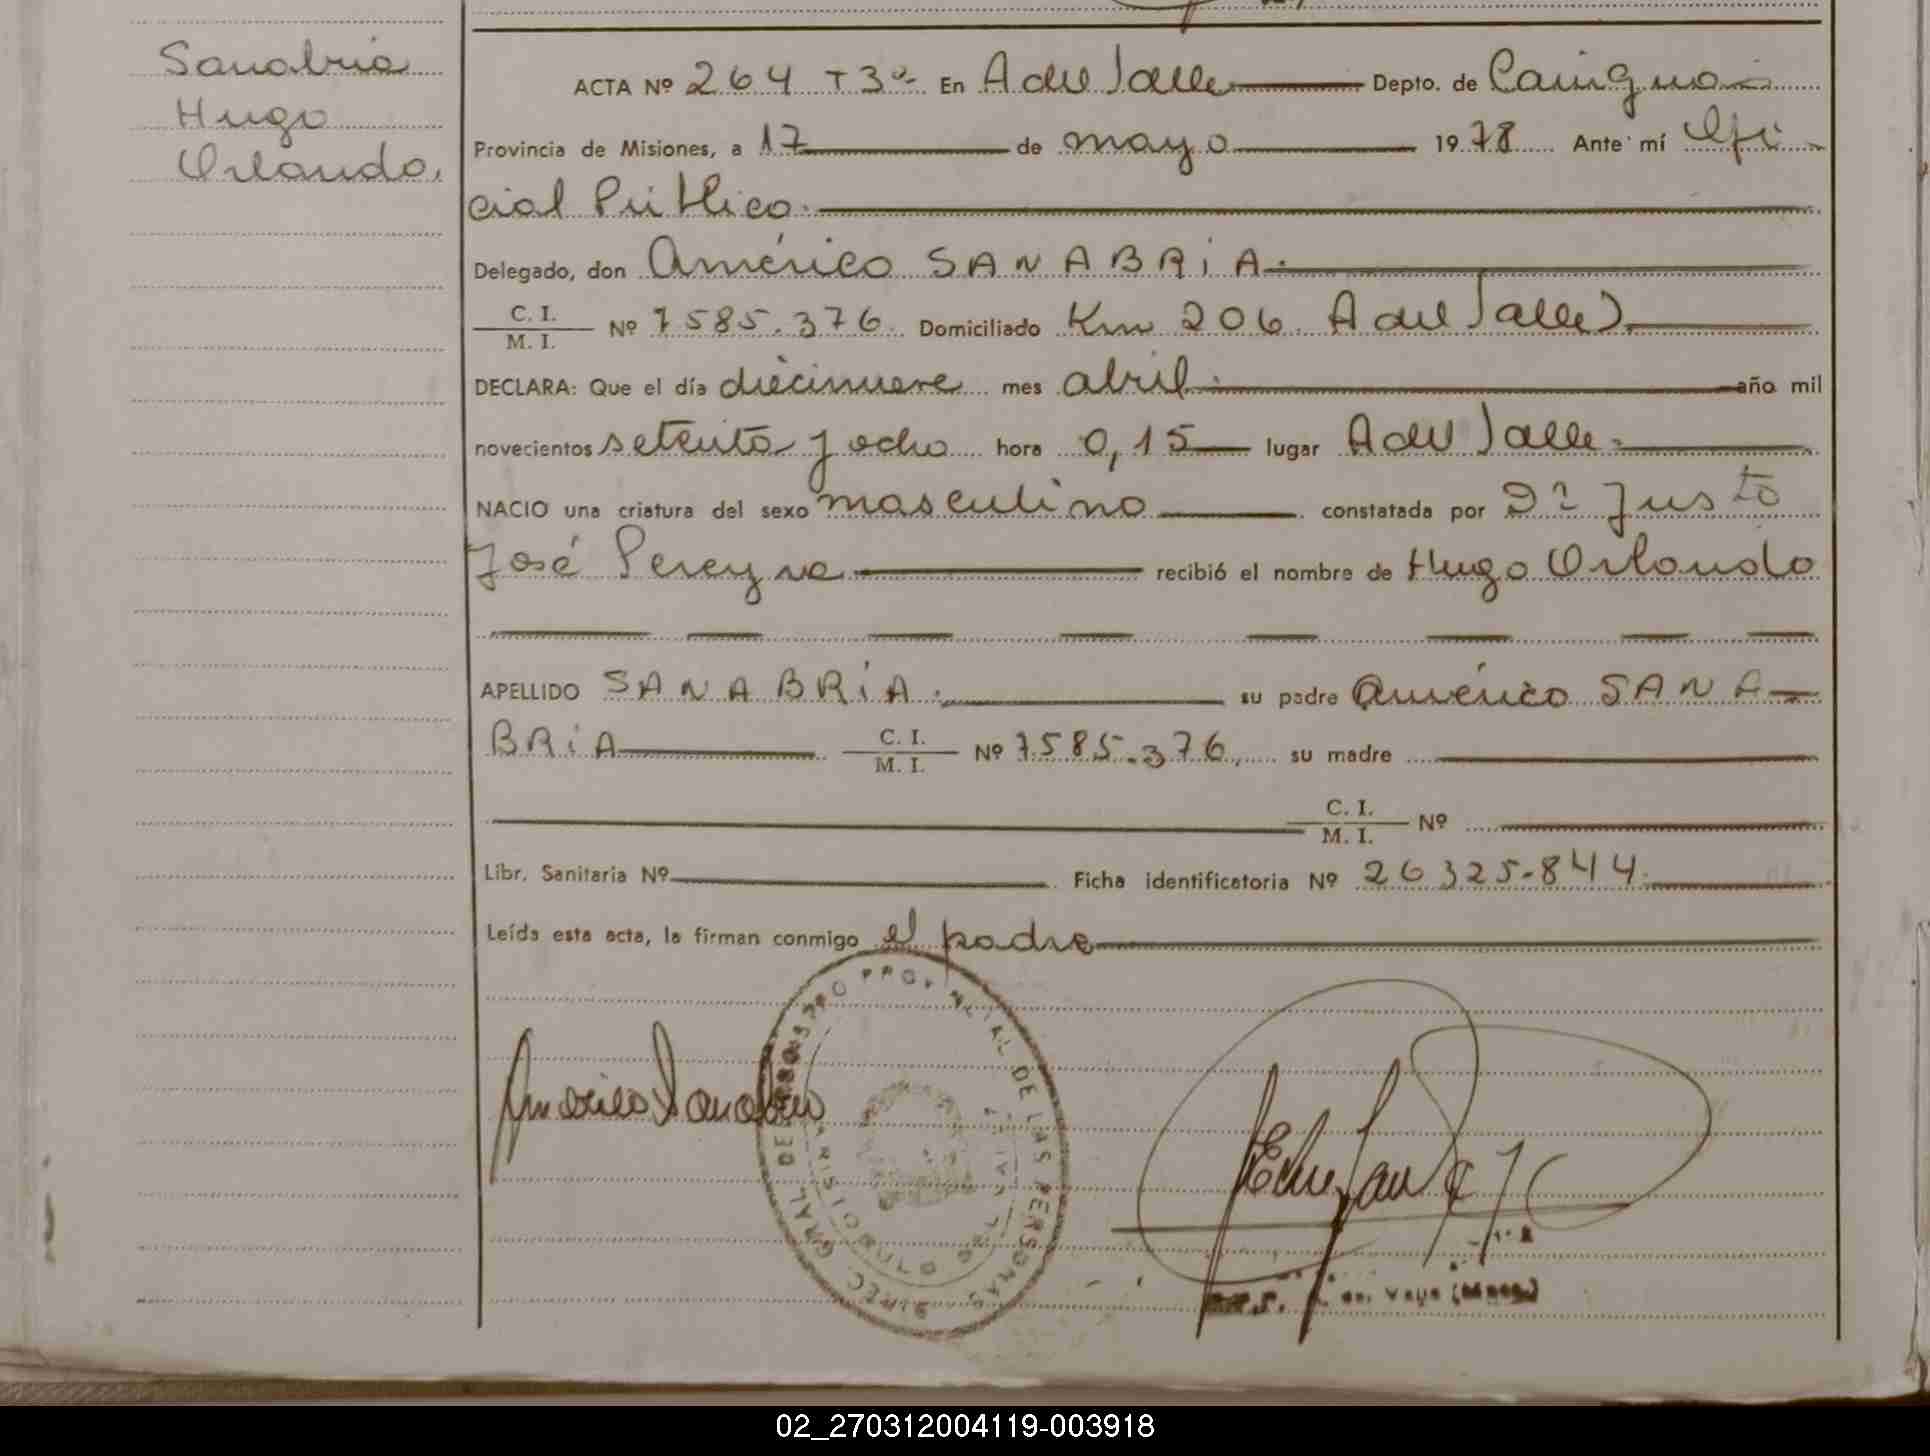 Sanabria
Hugo
Orlando.
ACTA Nº 264 T3º En A del Valle Depto. de Cainguás
Provincia de Misiones, a 17 de mayo 1978 Ante mí Ofi-
cial Público.
Delegado, don Américo SANABRIA.
C. I.
M. I. Nº 7585.376. Domiciliado Km 206. A del Valle
DECLARA: Que el día diecinueve mes abril. año mil
novecientos setenta y ocho hora 0,15 lugar A del Valle.
NACIO una criatura del sexo masculino constatada por Dr Justo
José Pereyra recibió el nombre de Hugo Orlando
APELLIDO SANABRIA. su padre Américo SANA-
BRIA C. I.
M. I. Nº 7.585.376, su madre
C. I.
M. I. Nº
Libr. Sanitaria Nº Ficha identificatoria Nº 26325.844.
Leída esta acta, la firman conmigo el padre
Americo Sanabria
DIREC. GRAL DE REGISTRO PROVINCIAL DE LAS PERSONAS
02_270312004119-003918